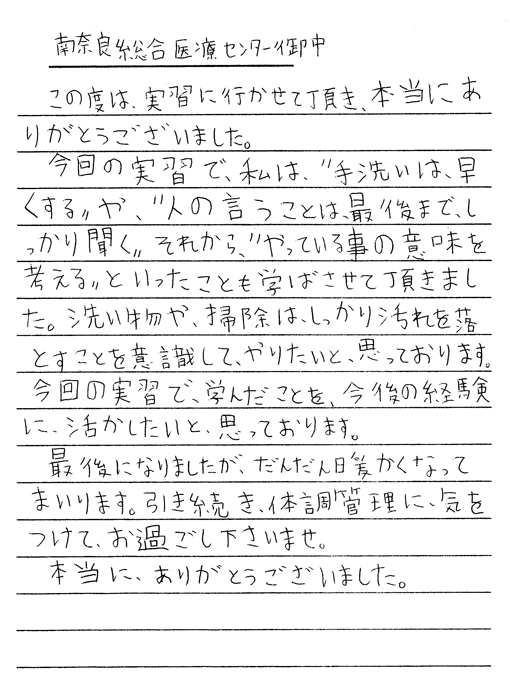 南奈良総合医療センター御中
この度は、実習に行かせて頂き、本当にあ
りがとうございました。
今回の実習で、私は、〝手洗いは、早
くする〟や、〝人の言うことは、最後まで、し
っかり聞く〟それから、〝やっている事の意味を
考える〟といったことも学ばさせて頂きまし
た。洗い物や、掃除は、しっかり汚れを落
とすことを意識して、やりたいと、思っております。
今回の実習で、学んだことを、今後の経験
に、活かしたいと、思っております。
最後になりましたが、だんだん日暖かくなって
まいります。引き続き、体調管理に、気を
つけて、お過ごし下さいませ。
本当に、ありがとうございました。